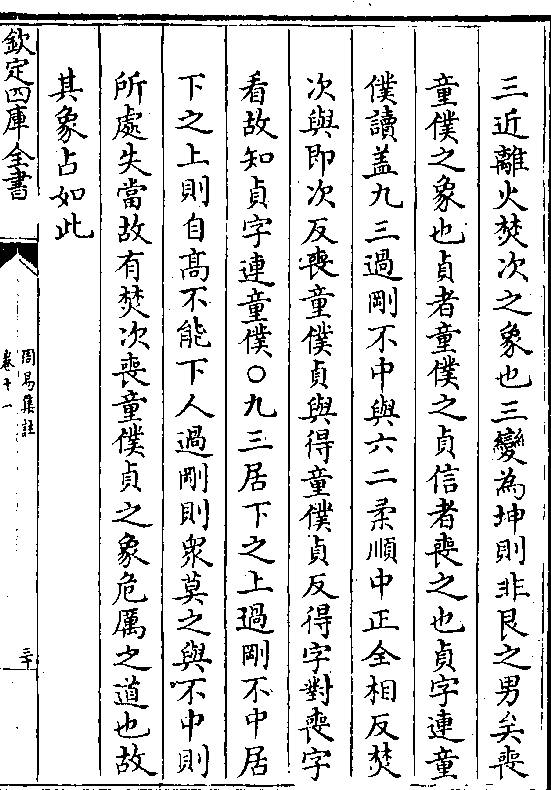 三近離火焚次之象也三變為坤則非艮之男矣喪
童僕之象也貞者童僕之貞信者喪之也貞字連童
僕讀盖九三過剛不中與六二柔順中正全相反焚
次與即次反喪童僕貞與得童僕貞反得字對喪字
看故知貞字連童僕○九三居下之上過剛不中居
下之上則自高不能下人過剛則衆莫之與不中則
所處失當故有焚次喪童僕貞之象危厲之道也故
其象占如此
欽定四庫全書
周易集註
卷十一
三十